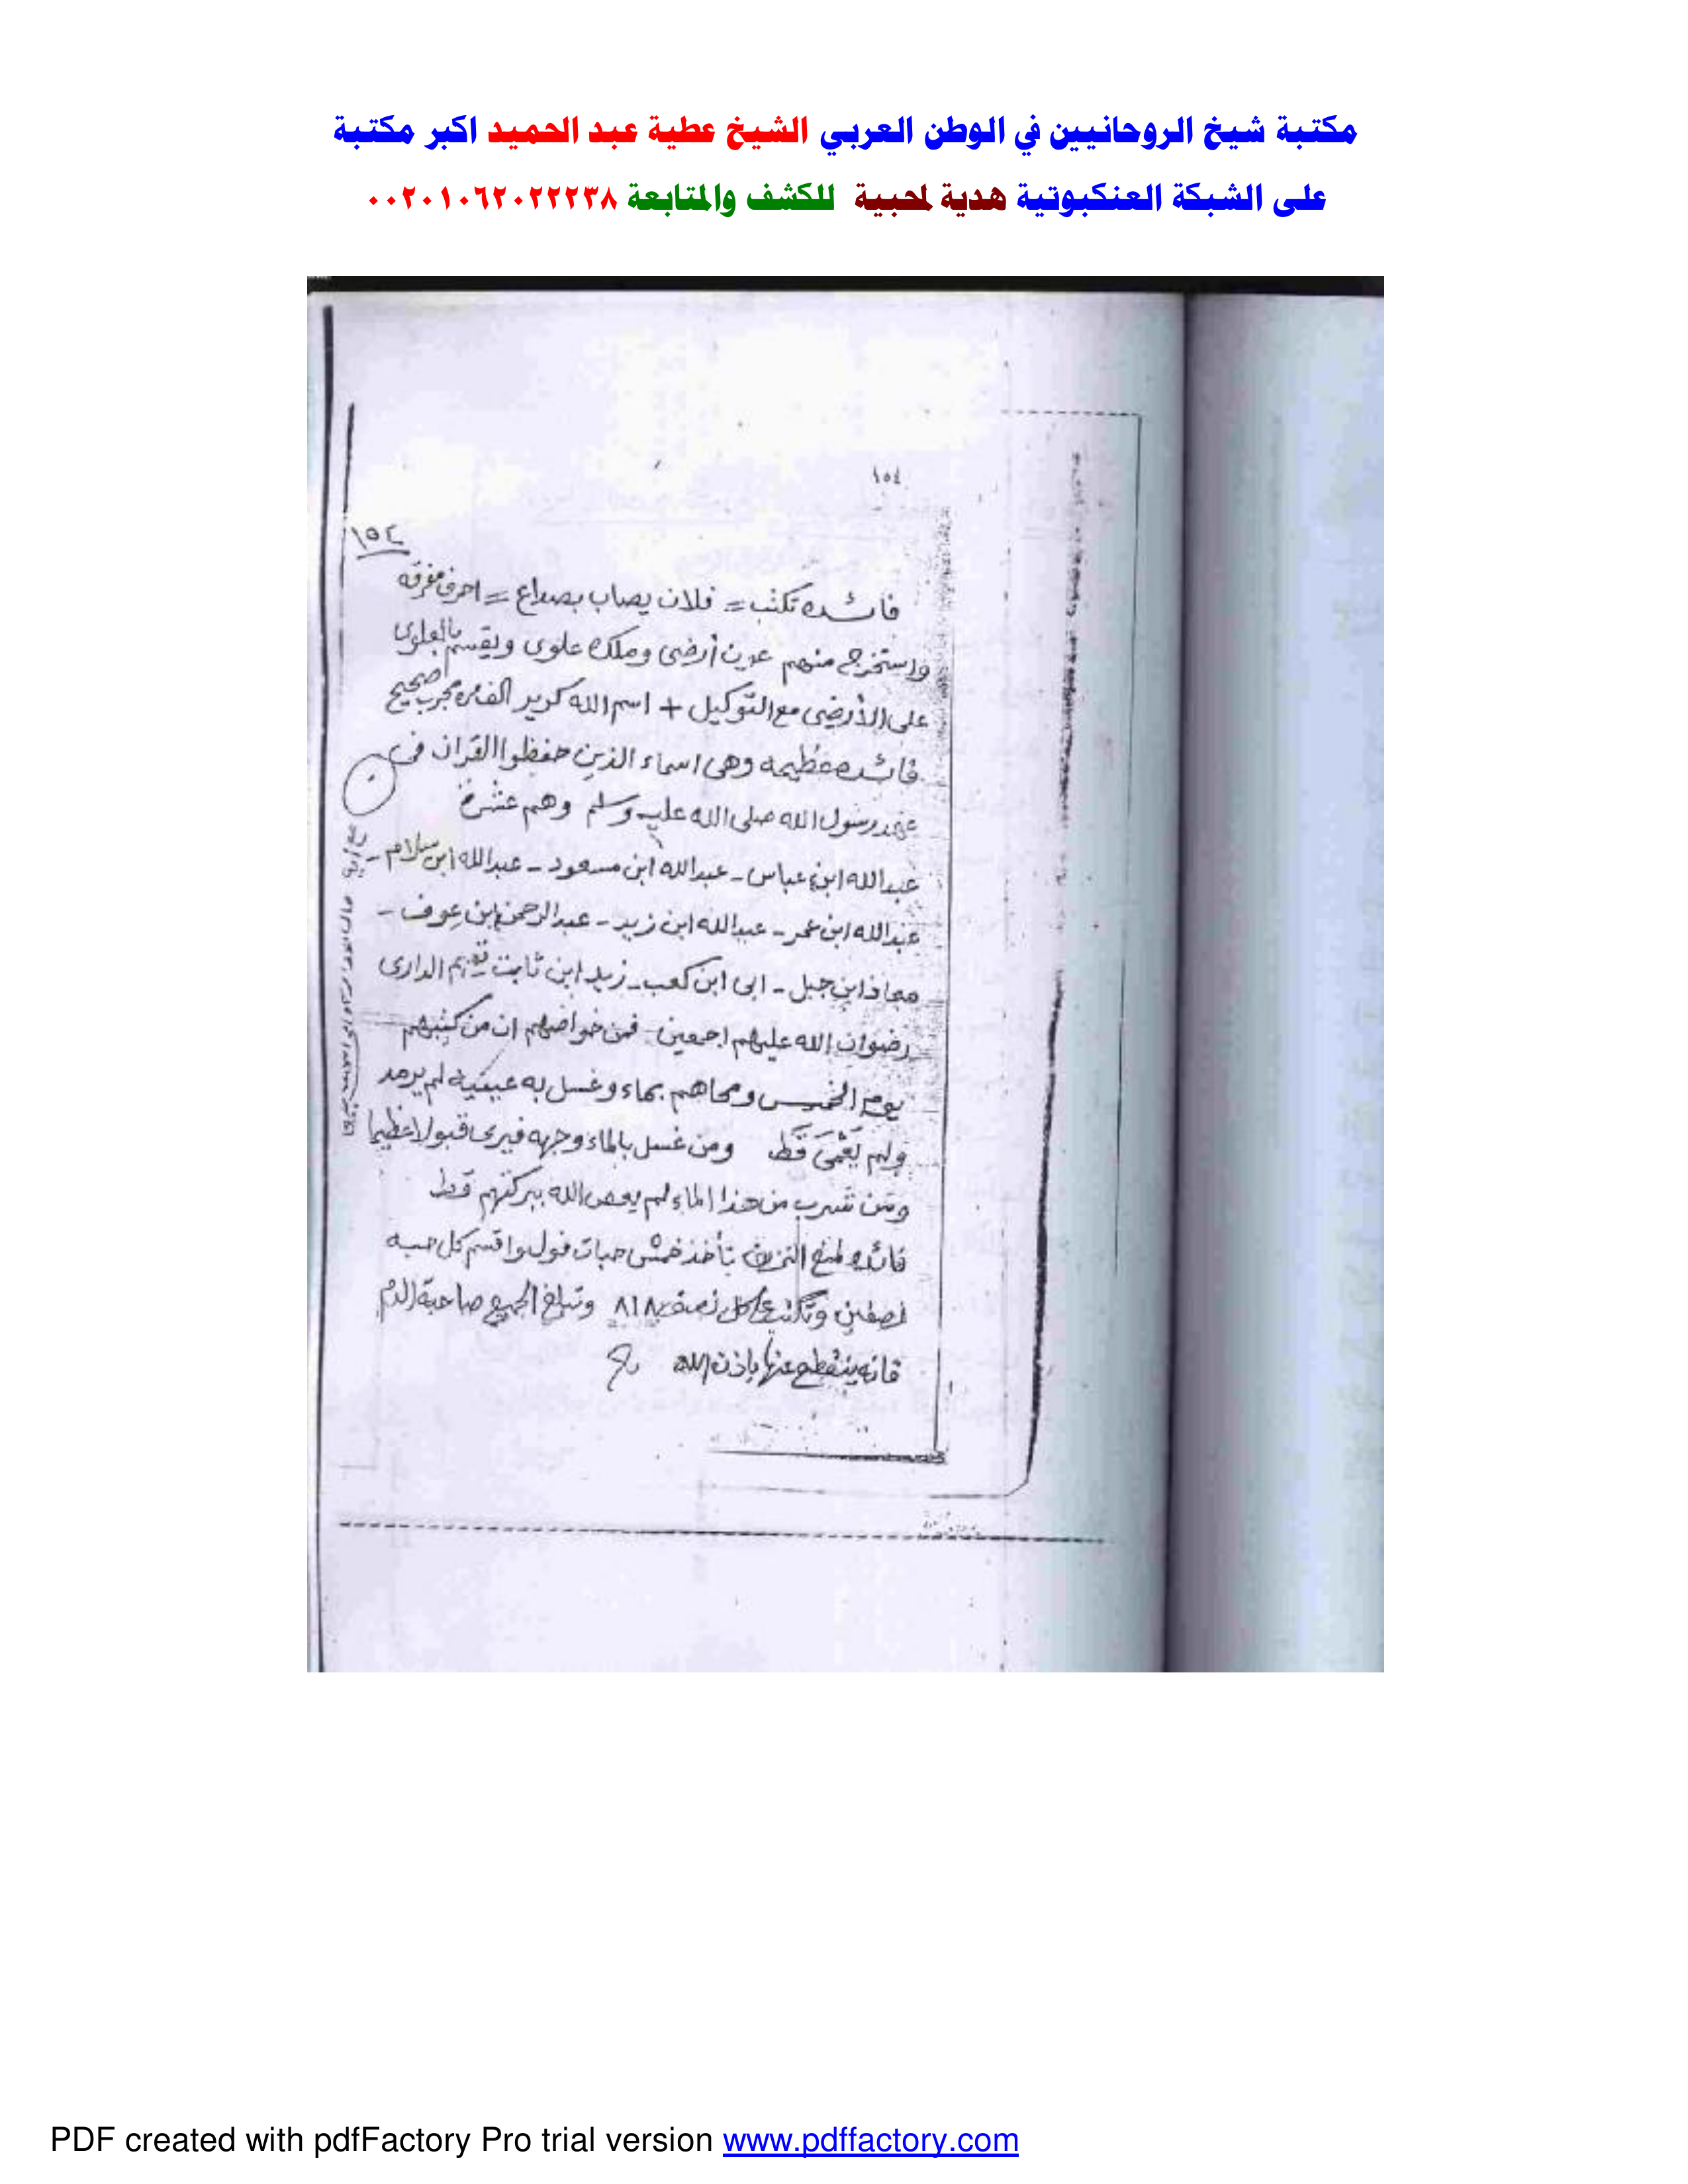 مكتبة شيخ الروحانيين في الوطن العربي الشيخ عطية عبد الحميد اكبر مكتبة
على الشبكة العنكبوتية هدية لمحبية للكشف والمتابعة ٠٠٢٠١٠٦٢٠٢٢٢٣٨
١٥٤
١٥٤
فائده تكتب = فلان يصاب بصداع = احرف مفرقه
واستخرج منهم عون أرضى وملك علوى ويقسم بالعلوى
على الأرضى مع التوكيل + اسم الله مجرب صحيح
فائده عظيمه وهى اسماء الذين حفظوا القران فى
عهد رسول الله صلى الله عليه وسلم وهم عشرة
عبدالله ابن عباس - عبدالله ابن مسعود - عبدالله ابن سلام -
عبدالله ابن عمر - عبدالله ابن زيد - عبدالرحمن ابن عوف -
معاذ ابن جبل - ابى ابن كعب - زيد ابن ثابت تميم الدارى
رضوان الله عليهم اجمعين - فمن خواصهم ان من كتبهم
يوم الخميس ومحاهم بماء وغسل به عينيه لم يرمد
ولم يَعْمَىَ قَط ومن غسل بالماء وجهه فيرى قبولا عظيما
ومن شرب من هذا الماء لم يعص الله ببركتهم قط
فائده لمنع النزيف تأخذ خمس حبات فول واقسم كل حبه
نصفين وتكتب على كل نصف ٨١٨ وتبلع الجميع صاحبة الدم
فانه ينقطع عنها باذن الله
PDF created with pdfFactory Pro trial version www.pdffactory.com